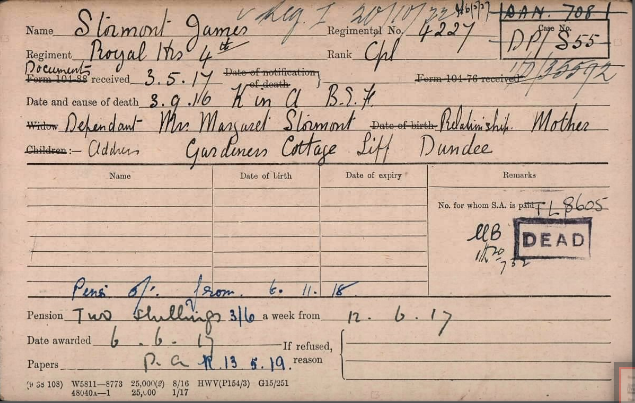 Name Stormont James Regimental No. 4227 DAN. 708 Case No.
Regiment Royal Hrs 4th Rank Cpl DP/ S55
Documents
Form 104-88 received 3.5.17 Date of notification of death Form 104-76 received 17/35592
Date and cause of death 3.9.16 K in A B.E.F
Widow Dependant Mrs Margaret Stormont Date of birth Relationship Mother
Children:— Address Gardeners Cottage Liff Dundee
Name Date of birth Date of expiry Remarks
No. for whom S.A. is paid TL 8605
DEAD
Pens. from 6. 11. 18
Pension Two shillings 3/6 a week from 12. 6. 17
Date awarded 6. 6. 17 If refused, reason
Papers
(9 38 103) W5811—8773 25,000(2) 8/16 HWV(P154/3) G15/251
48040A—1 25,000 1/17